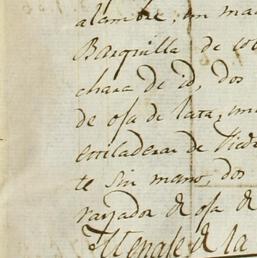 alambre; un ma
Barquilla de co
chara de id, dos
de oja de lata, un
estiladeras de Piedr
te sin mano, dos
rayador de oja de
Menage de la